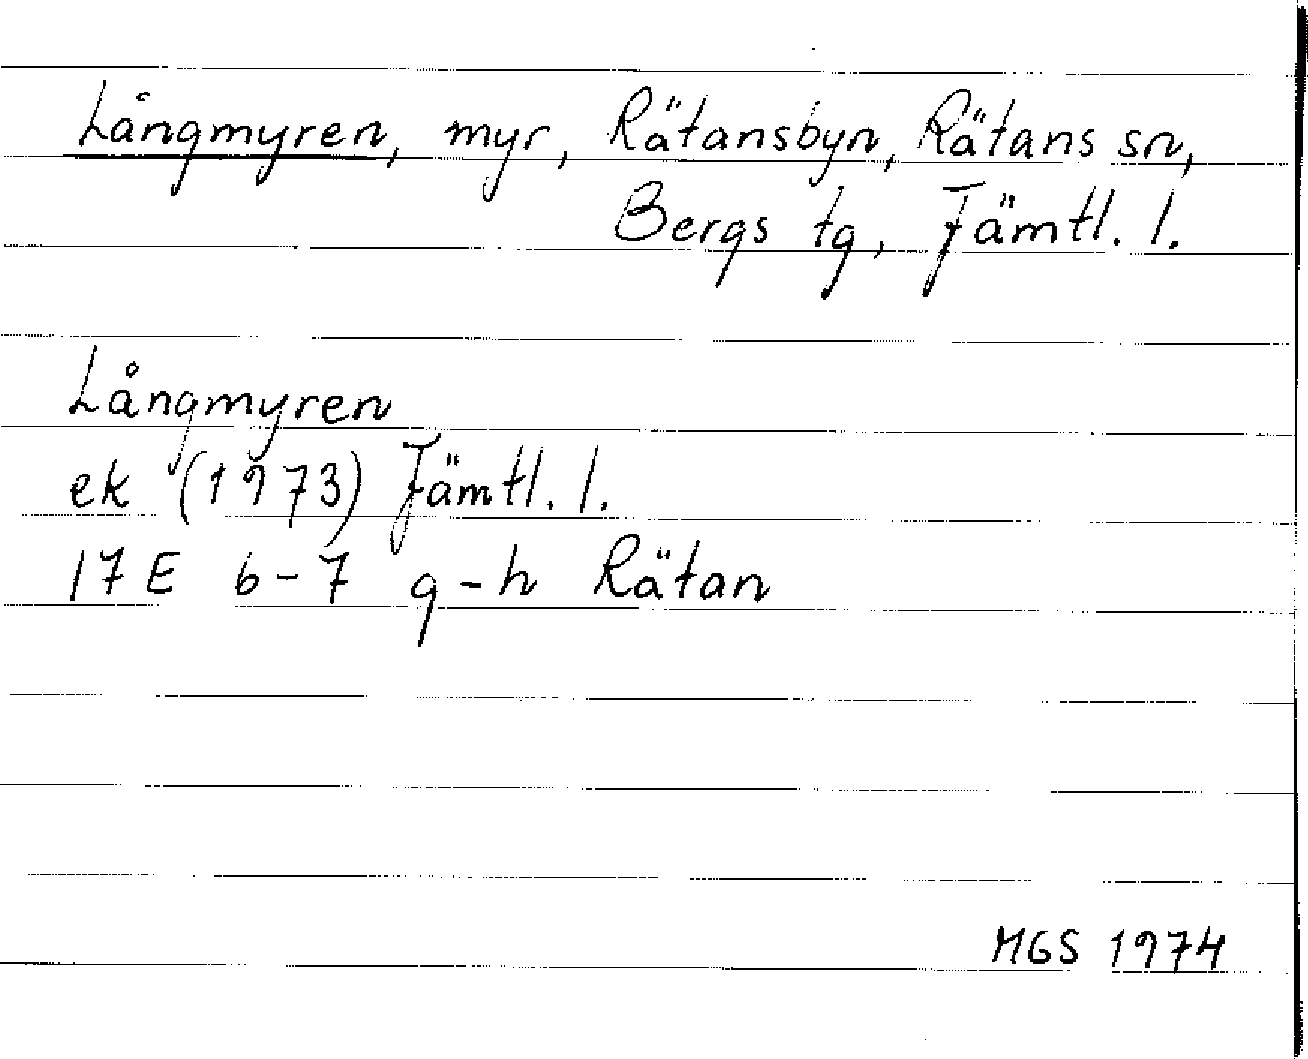 Långmyren, myr, Rätansbyn, Rätans sn,
Bergs tg, Jämtl. l.
Långmyren
ek (1973) Jämtl. l.
17E 6-7 g-h Rätan
MGS 1974